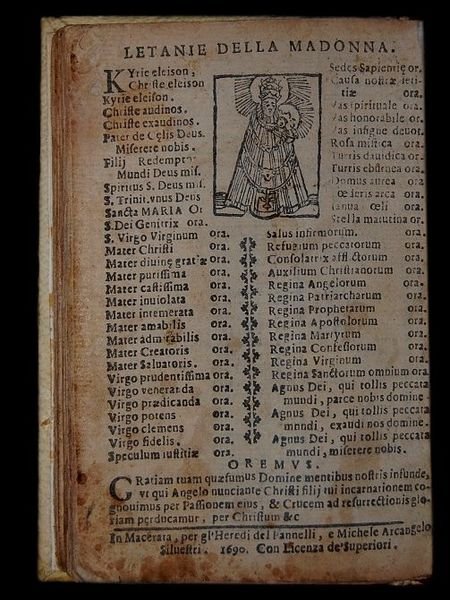 LETANIE DELLA MADONNA.
KYrie eleison,
Christe eleison
Kyrie eleison.
Christe audinos.
Christe exaudinos.
Pater de Cęlis Deus.
Miserere nobis.
Filij Redemptor
Mundi Deus mis.
Spiritus S. Deus mis.
S. Trinit. vnus Deus
Sancta MARIA Or
S. Dei Genitrix ora.
S. Virgo Virginum ora.
Mater Christi ora.
Mater diuinę gratiæ ora.
Mater purissima ora.
Mater castissima ora.
Mater inuiolata ora.
Mater intemerata ora.
Mater amabilis ora.
Mater admirabilis ora.
Mater Creatoris ora.
Mater Saluatoris. ora.
Virgo prudentissima ora.
Virgo veneranda ora.
Virgo prædicanda ora.
Virgo potens ora.
Virgo clemens ora.
Virgo fidelis. ora.
Speculum iustitiæ ora.
Sedes Sapientię or.
Causa nostræ leti-
tiæ ora.
Vas spirituale ora.
Vas honorabile or.
Vas insigne deuor.
Rosa mistica ora.
Turris dauidica or.
Turris eburnea ora.
Domus aurea ora.
fœderis arca ora.
Ianua cœli ora.
Stella matutina or.
Salus infirmorum. ora.
Refugium peccatorum ora.
Consolatrix afflictorum ora.
Auxilium Christianorum ora.
Regina Angelorum ora.
Regina Patriarcharum ora.
Regina Prophetarum ora.
Regina Apostolorum ora.
Regina Martyrum ora.
Regina Confessorum ora.
Regina Virginum ora.
Regina Sanctorum omnium ora.
Agnus Dei, qui tollis peccata
mundi, parce nobis domine.
Agnus Dei, qui tollis peccata
mnndi, exaudi nos domine.
Agnus Dei, qui tollis peccata
mundi, miserere nobis.
OREMVS.
GRatiam tuam quæsumus Domine mentibus nostris infunde,
vt qui Angelo nunciante Christi filij tui incarnationem co-
gnouimus per Passionem eius, & Crucem ad resurrectionis glo-
riam perducamur, per Christum &c
In Macerata, per gl'Heredi del Pannelli, e Michele Arcangelo
Siluestri. 1690. Con Licenza de'Superiori.